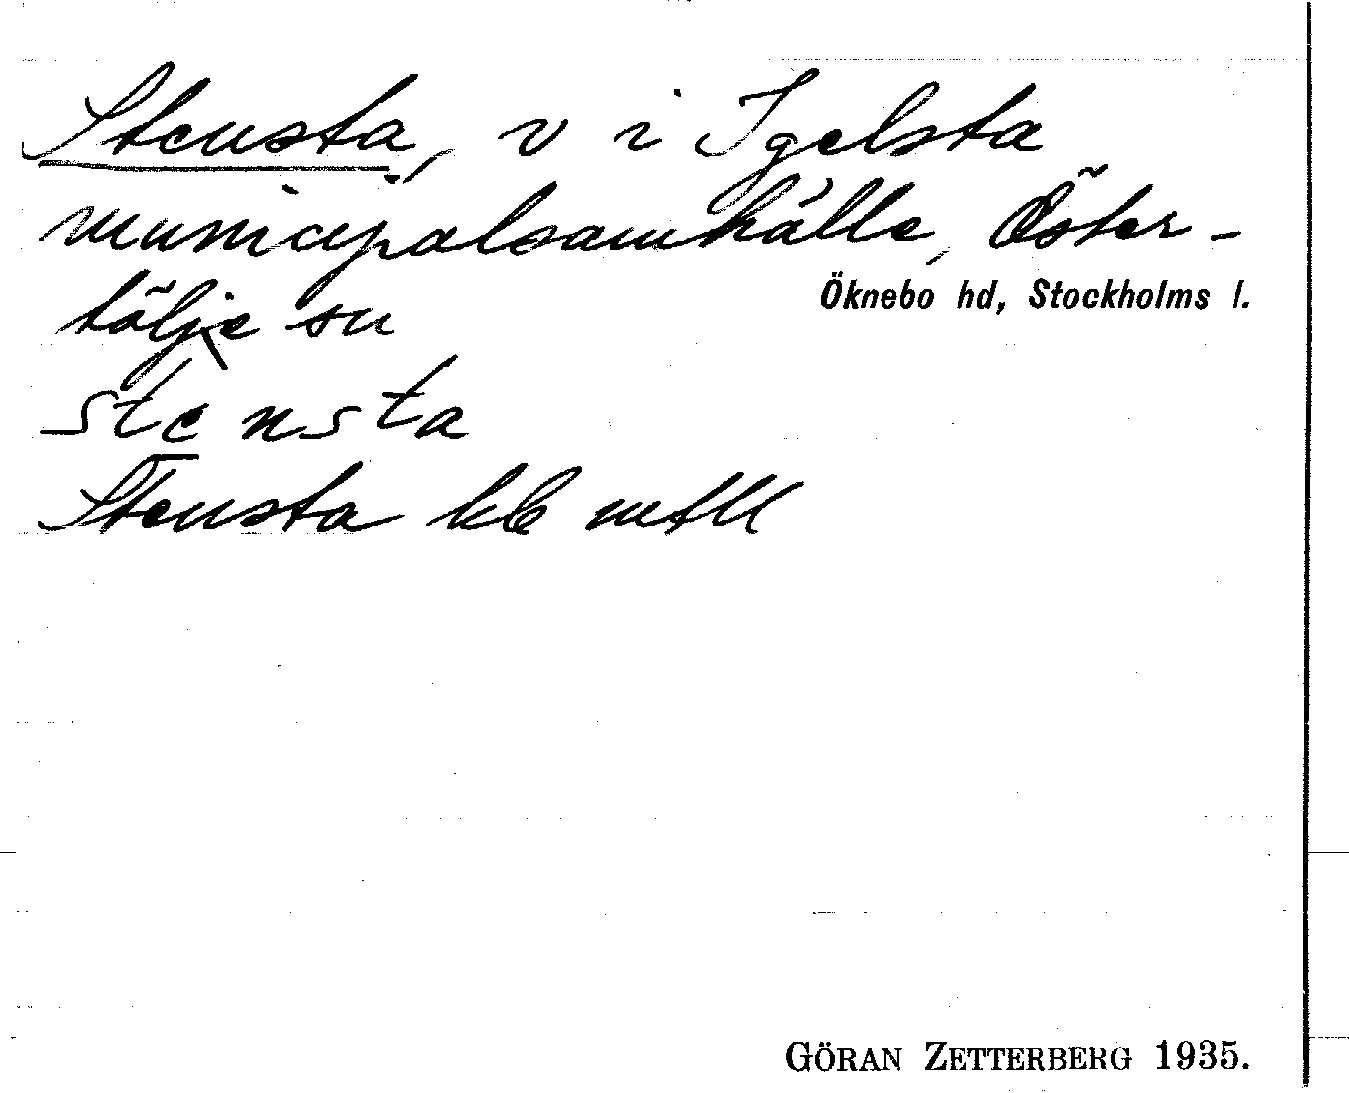 Stensta, v i Igelsta
municipalsamhälle, Öster-
tälje sn
Öknebo hd, Stockholms l.
stensta
Stensta hb mtll
GÖRAN ZETTERBERG 1935.